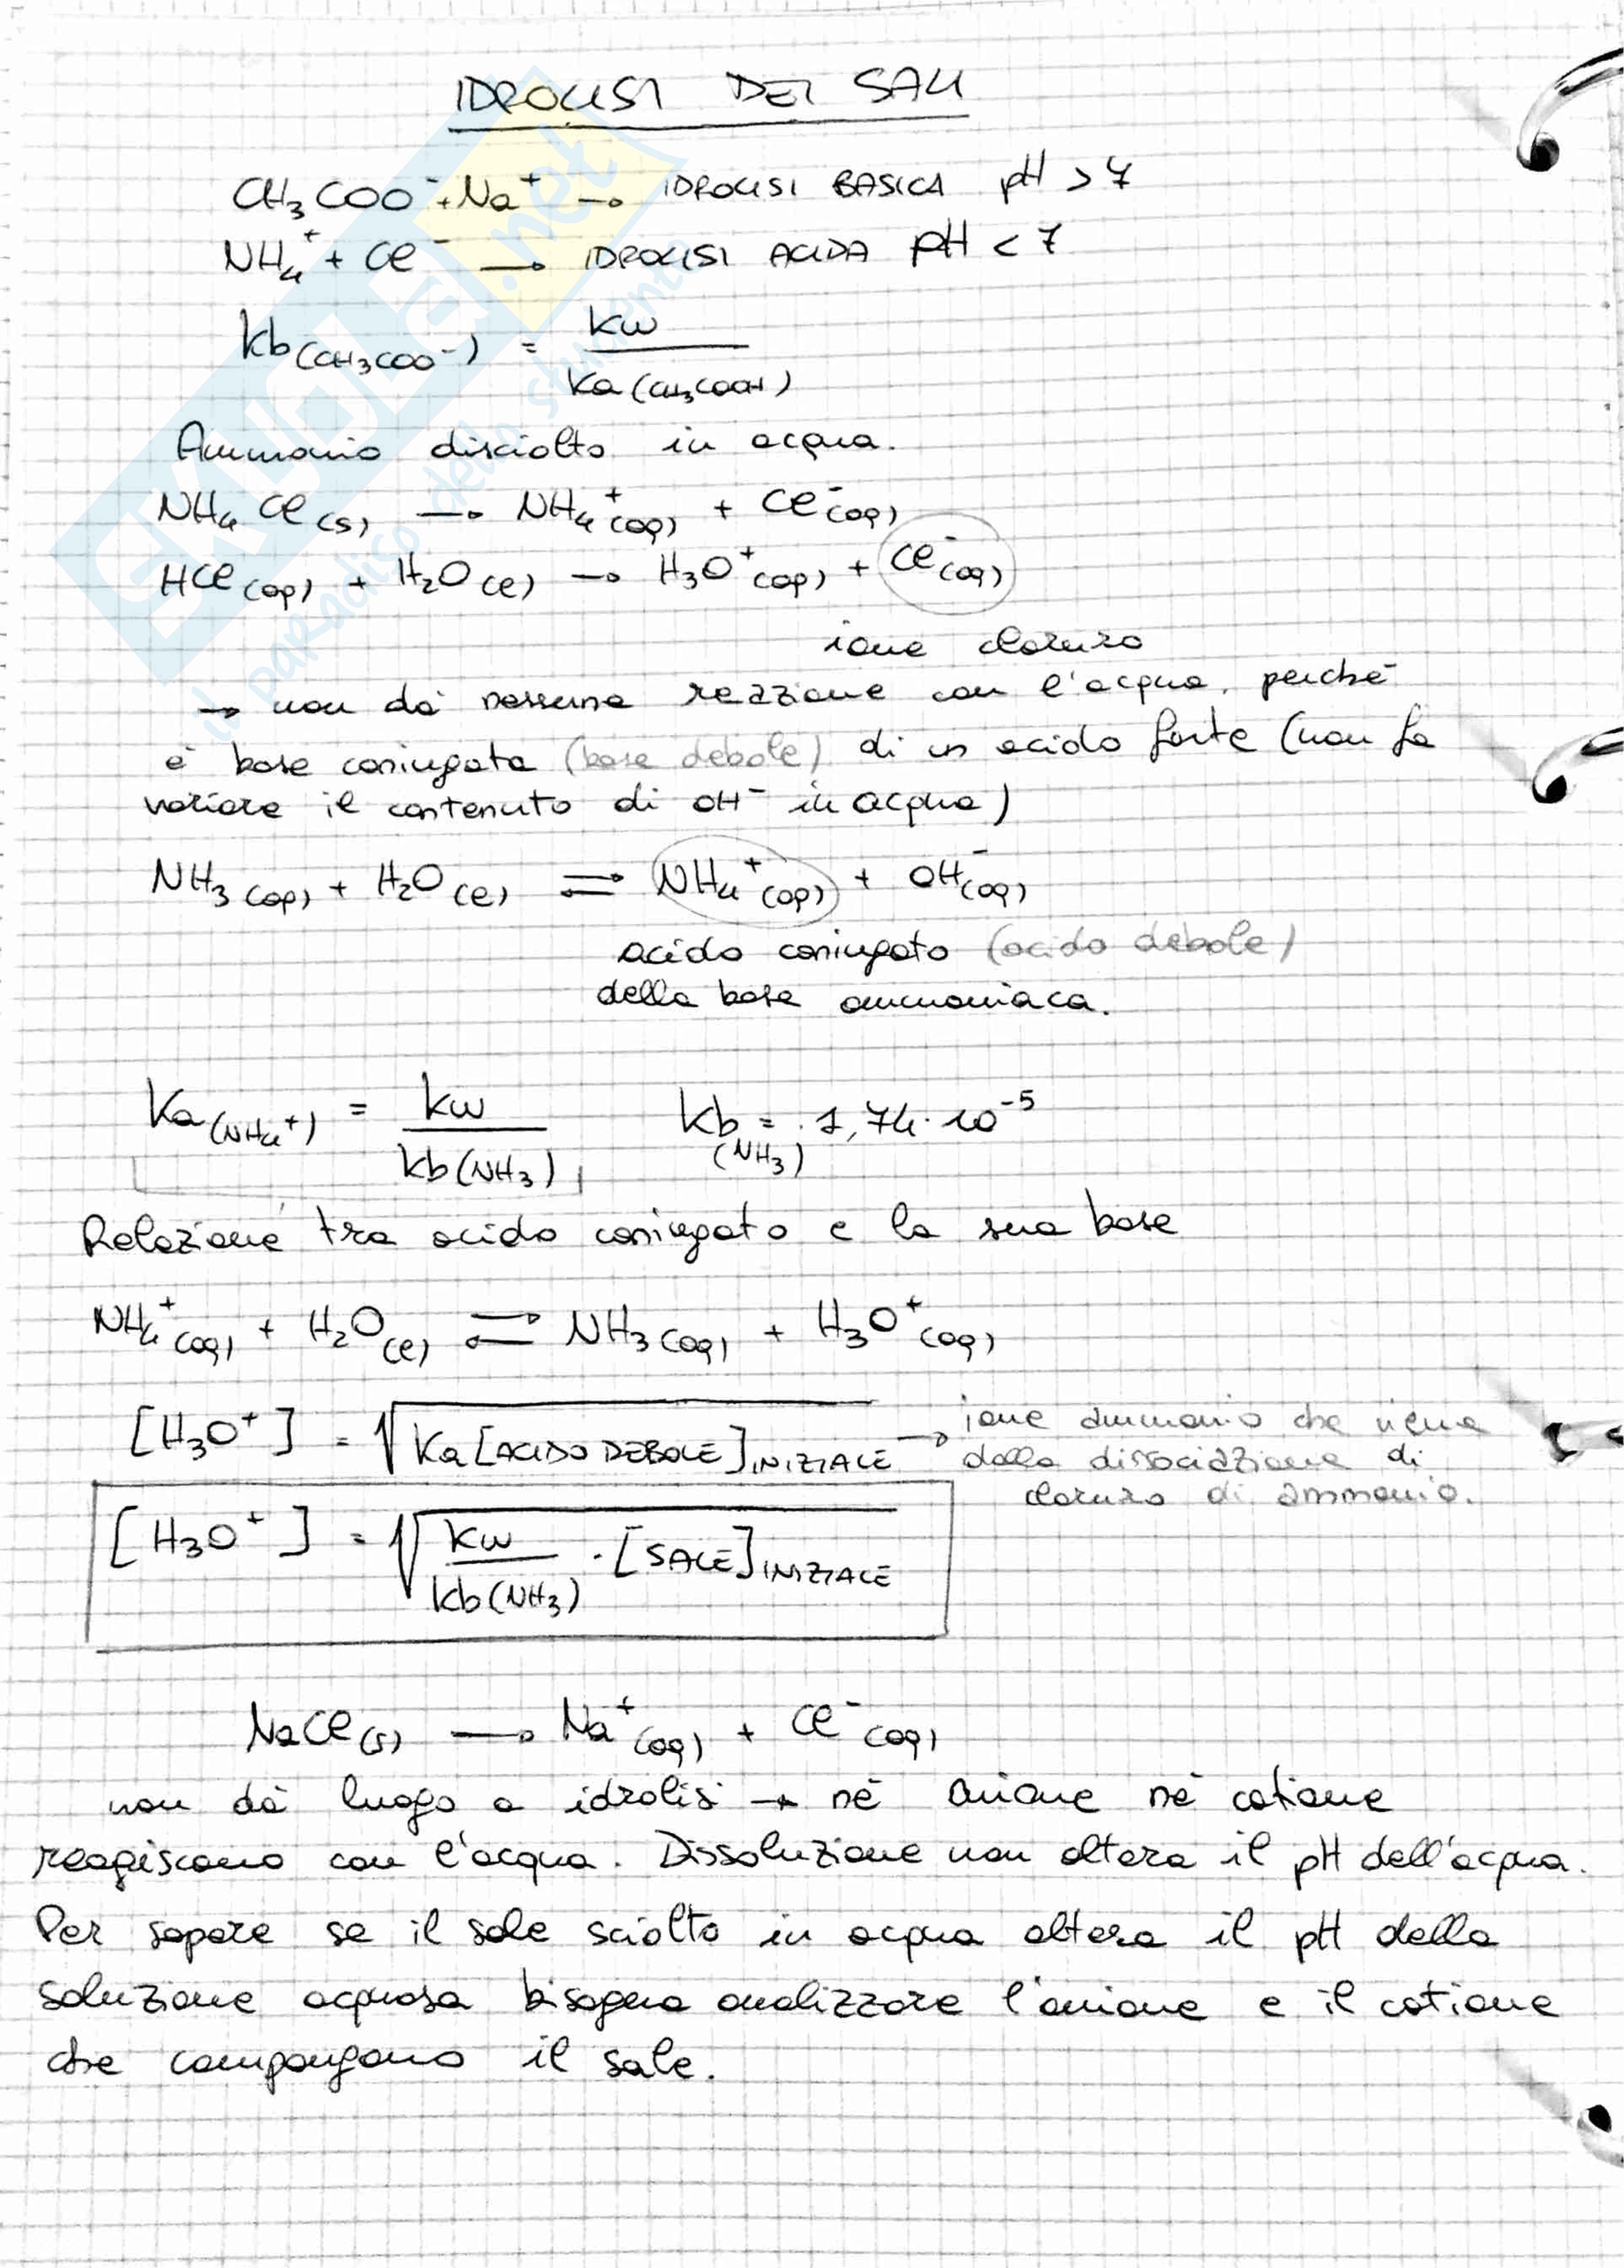 IDROLISI DEI SALI
CH₃COO⁻ + Na⁺ → IDROLISI BASICA pH > 7
NH₄⁺ + Cl⁻ → IDROLISI ACIDA pH < 7
kb(CH₃COO⁻) = kw / ka(CH₃COOH)
Ammonio disciolto in acqua.
NH₄Cl(s) → NH₄⁺(aq) + Cl⁻(aq)
HCl(aq) + H₂O(l) → H₃O⁺(aq) + Cl⁻(aq)
ione cloruro
→ non dà nessuna reazione con l'acqua, perché
è base coniugata (base debole) di un acido forte (non fa
variare il contenuto di OH⁻ in acqua)
NH₃(aq) + H₂O(l) ⇌ NH₄⁺(aq) + OH⁻(aq)
acido coniugato (acido debole)
della base ammoniaca.
Ka(NH₄⁺) = kw / kb(NH₃) kb(NH₃) = 1,74·10⁻⁵
Relazione tra acido coniugato e la sua base
NH₄⁺(aq) + H₂O(l) ⇌ NH₃(aq) + H₃O⁺(aq)
[H₃O⁺] = √Ka[ACIDO DEBOLE]INIZIALE → ione ammonio che viene
dalla dissociazione di
cloruro di ammonio.
[H₃O⁺] = √kw / kb(NH₃) · [SALE]INIZIALE
NaCl(s) → Na⁺(aq) + Cl⁻(aq)
non dà luogo a idrolisi → né anione né catione
reagiscono con l'acqua. Dissoluzione non altera il pH dell'acqua.
Per sapere se il sale sciolto in acqua altera il pH della
soluzione acquosa bisogna analizzare l'anione e il catione
che compongono il sale.
SKUOLA.net
il paradiso dello studente